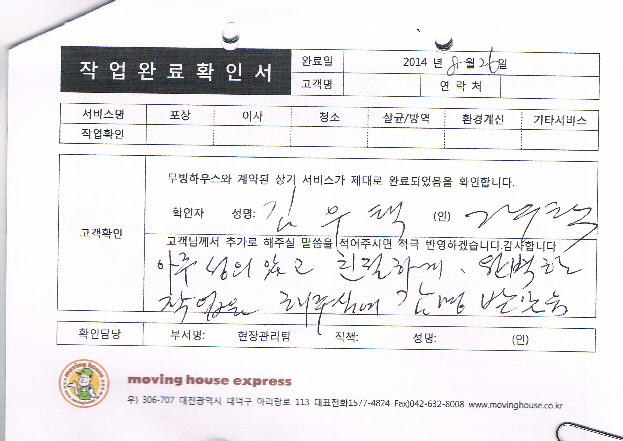 작업완료확인서
완료일 2014 년 8 월 26 일
고객명 연락처
서비스명 포장 이사 청소 살균/방역 환경개선 기타서비스
작업확인
고객확인
무빙하우스와 계약된 상기 서비스가 제대로 완료되었음을 확인합니다.
확인자 성명: 김우택 (인)
고객님께서 추가로 해주실 말씀을 적어주시면 적극 반영하겠습니다.감사합니다
아주 성의 있고 친절하게, 완벽한
작업을 해주심에 감명 받았음
확인담당 부서명: 현장관리팀 직책: 성명: (인)
moving house
www.movinghouse.co.kr
moving house express
우) 306-707 대전광역시 대덕구 아리랑로 113 대표전화1577-4824 Fax)042-632-8008 www.movinghouse.co.kr